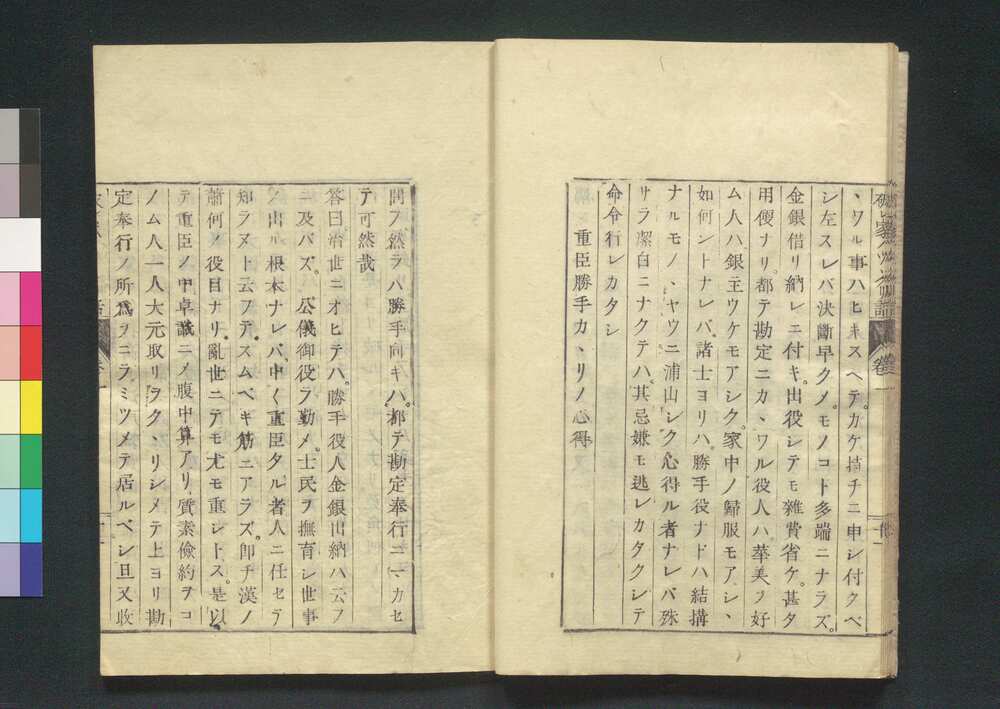 ヽワル事ハヒキスヘテ。カケ持チニ申シ付クベ
シ左スレバ決斷早クメ。モノコト多端ニナラズ。
金銀借リ納レニ付キ。出役シテモ雜費省ケ。甚タ
用便ナリ。都テ勘定ニカヽワル役人ハ。華美ヲ好
ム人ハ。銀主ウケモアシク。家中ノ歸服モアシヽ
如何ントナレバ。諸士ヨリハ。勝手役ナドハ結搆
ナルモノヽヤウニ浦山シク。心得ル者ナレバ。殊
サラ潔白ニナクテハ。其忌嫌モ逃レカタクシテ
命令行レカタシ
重臣勝手カヽリノ心得
問フ然ラハ勝手向キハ。都テ勘定奉行ニマカセ
テ可然哉
答曰。治世ニオヒテハ。勝手役人金銀出納ハ云フ
ニ及バズ。公儀御役ヲ勤メ。士民ヲ撫育シ世事
ノ出ル根本ナレバ。中〱重臣タル者人ニ任セテ
知ラヌト云フテ。スムベキ筋ニアラズ。卽チ漢ノ
蕭何ノ役目ナリ。亂世ニテモ尤モ重シトス。是以
テ重臣ノ中卓識ニメ腹中算アリ。質素儉約ヲコ
ノム人一人大元取リヲクヽリシメテ上ヨリ勘
定奉行ノ所爲ヲニラミツメテ居ルベシ且又收